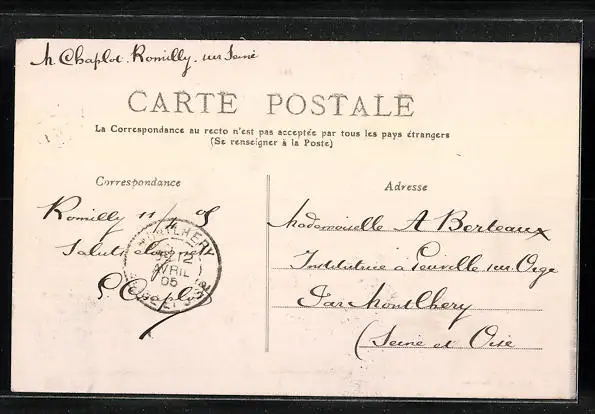 M. Chaplot. Romilly. sur Seine
CARTE POSTALE
La Correspondance au recto n'est pas acceptée par tous les pays étrangers
(Se renseigner à la Poste)
Correspondance
Adresse
Romilly 11/4 05
Saluts
Chaplot
MONTLHERY
12
AVRIL
05
Mademoiselle A Berteaux
Institutrice à Leuville sur Orge
Par Montlhery
(Seine et Oise